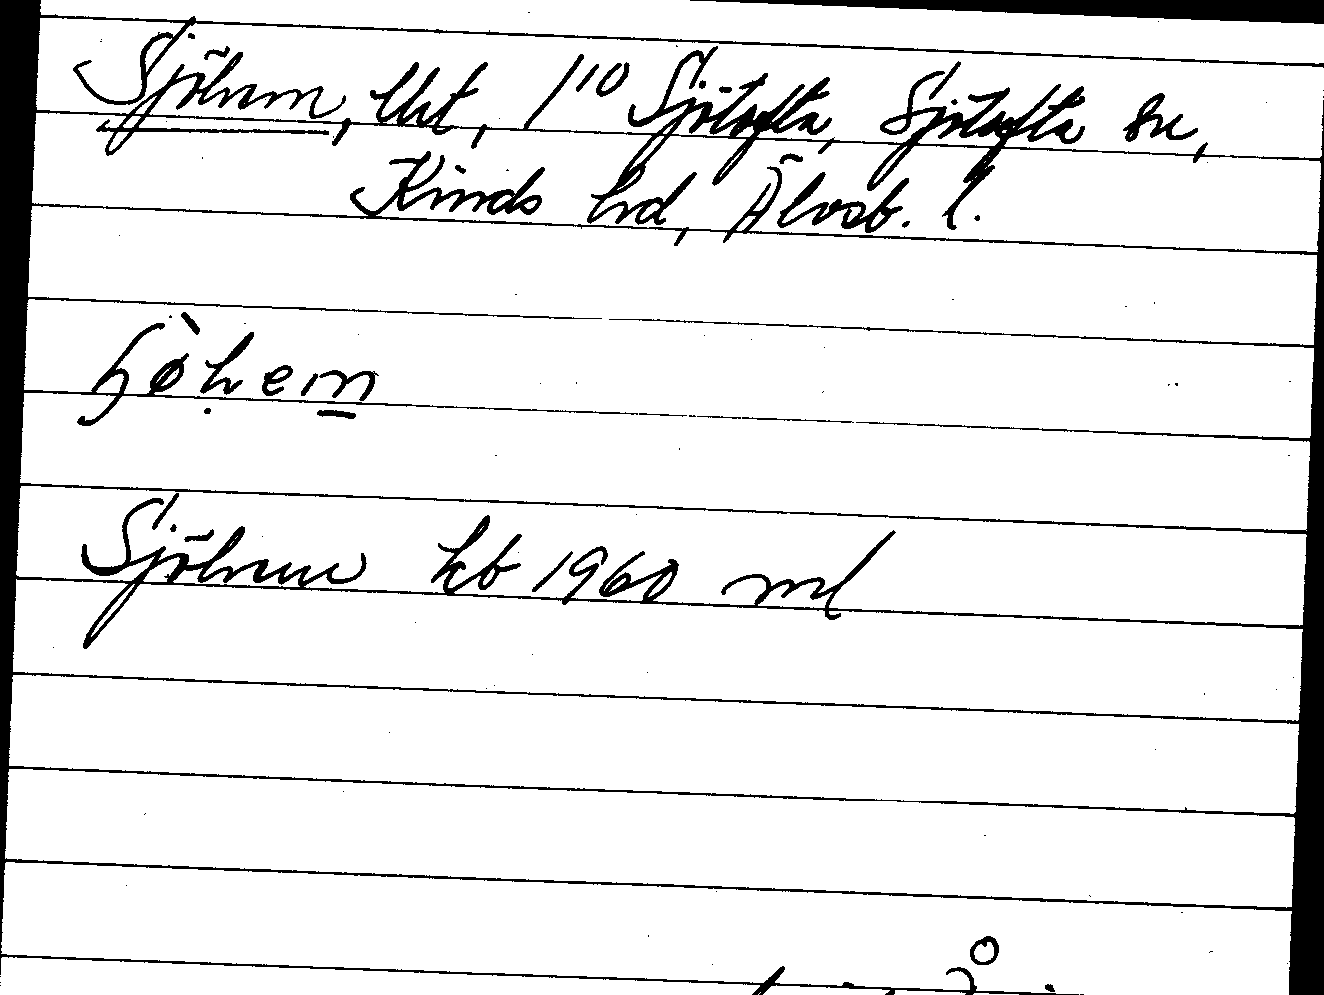 Sjöhem, lht, 1¹⁰ Sjötofta, Sjötofta sn,
Kinds hd, Älvsb. l.
ɧø̀ḥem̲
Sjöhem kb 1960 ml